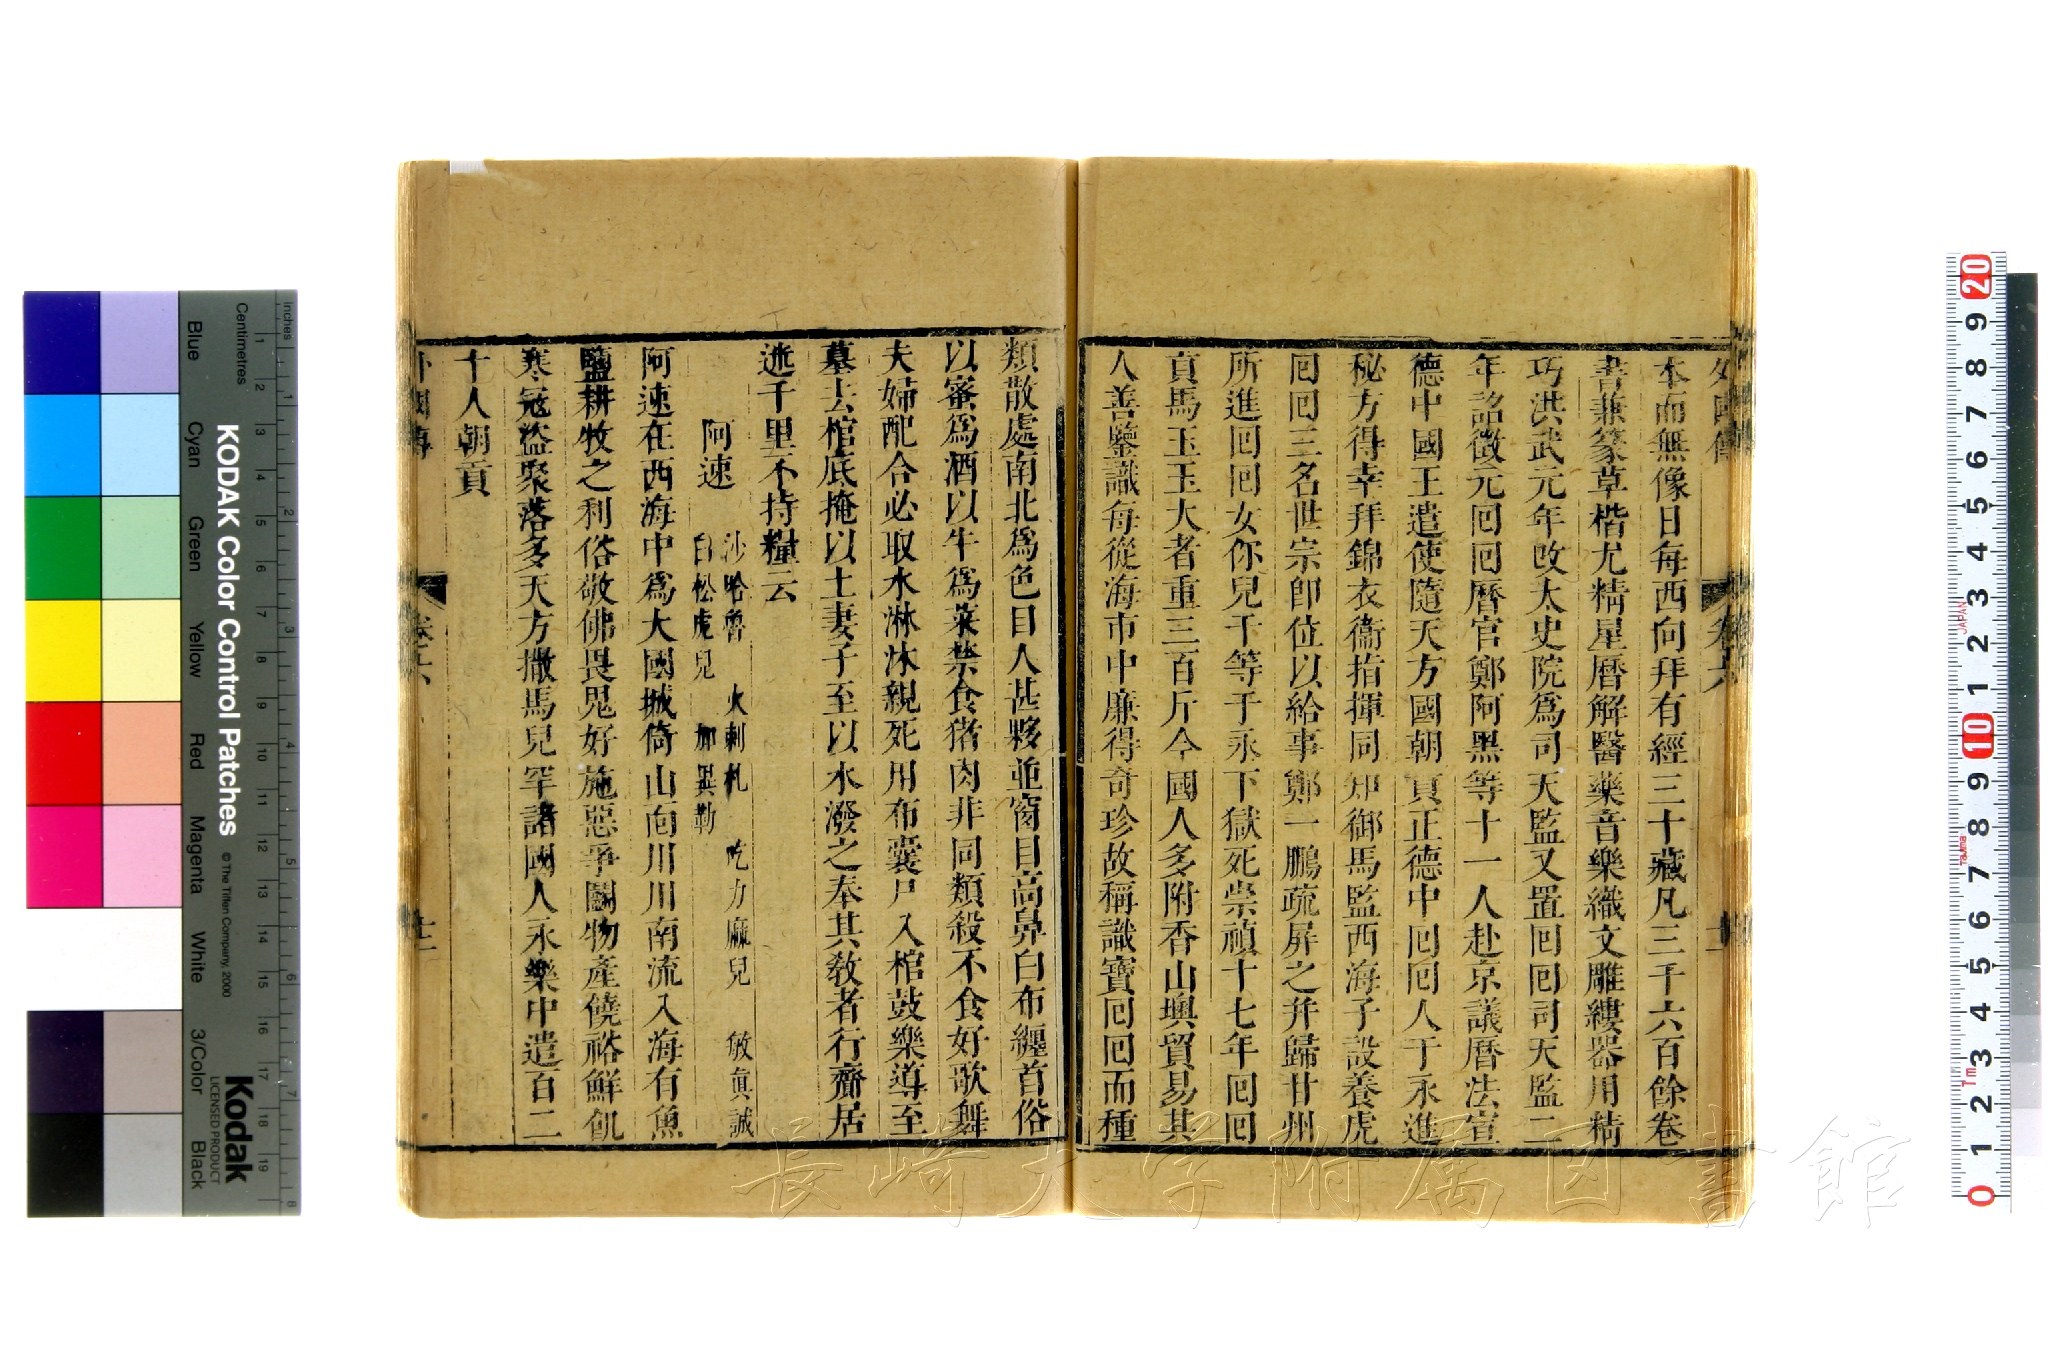 外國傳
卷六
本而無像日每西向拜有經三十藏凡三千六百餘卷
書兼篆草楷尤精星曆解醫藥音樂織文雕縷器用精
巧洪武元年改太史院爲司天監又置囘囘司天監二
年詔徵元囘囘曆官鄭阿黑等十一人赴京議曆法宣
德中國王遣使隨天方國朝貢正德中囘囘人于永進
秘方得幸拜錦衣衞指揮同知御馬監西海子設養虎
囘囘三名世宗卽位以給事鄭一鵬疏屏之并歸甘州
所進囘囘女你兒干等于永下獄死崇禎十七年囘囘
貢馬玉玉大者重三百斤今國人多附香山墺貿易其
人善鑒識每從海市中廉得奇珍故稱識寶囘囘而種
類散處南北爲色目人甚夥並窗目高鼻白布纏首俗
以蜜爲酒以牛爲菜禁食猪肉非同類殺不食好歌舞
夫婦配合必取水淋沐親死用布囊尸入棺鼓樂導至
墓去棺底掩以土妻子至以水潑之奉其教者行齋居
送千里不持糧云
阿速 沙哈魯 火剌札 吃力麻兒 敏眞誠
白松虎兒 加異勒
阿速在西海中爲大國城倚山面川川南流入海有魚
鹽耕牧之利俗敬佛畏鬼好施惡爭鬬物產饒裕鮮飢
寒寇盜聚落多天方撒馬兒罕諸國人永樂中遣百二
十人朝貢
外國傳
卷六
十二
KODAK Color Control Patches
© The Tiffen Company, 2000
Kodak
LICENSED PRODUCT
Inches
Centimetres
Blue
Cyan
Green
Yellow
Red
Magenta
White
3/Color
Black
JAPAN
長崎大学附属図書館